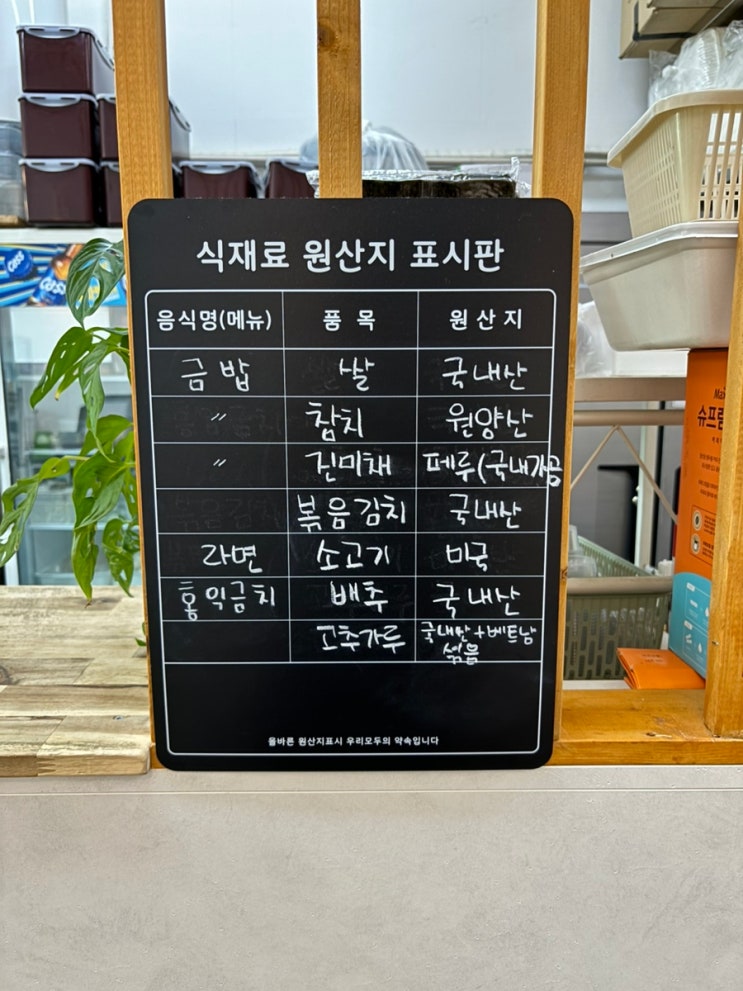 식재료 원산지 표시판
음식명(메뉴) 품목 원산지
금밥 쌀 국내산
〃 참치 원양산
〃 진미채 페루(국내가공
볶음김치 국내산
라면 소고기 미국
홍익금치 배추 국내산
고추가루 국내산+베트남
섞음
올바른 원산지표시 우리모두의 약속입니다
Cass
슈프림